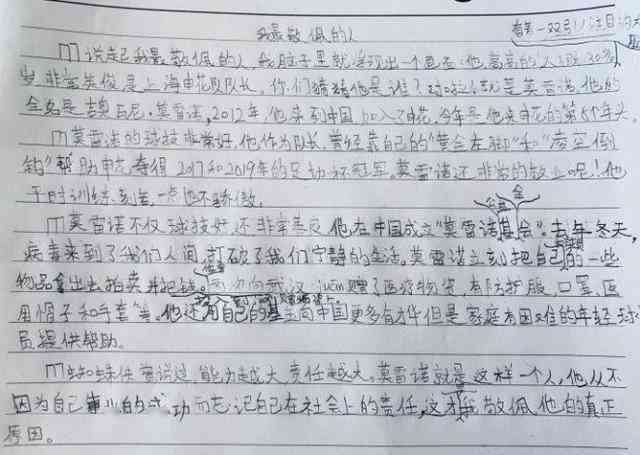 我最敬佩的人
有着一双引人注目的大
说起我最敬佩的人,我脑子里就浮现出一个画面:他,高高的个
岁,非常英俊,是上海申花队队长。你们猜猜他是谁?对啦!就是莫雷诺,他的
全名是吉奥瓦尼·莫雷诺,2012年他来到中国加入了申花,今年是他来申花的第
莫雷诺的球技非常好,他作为队长,曾经靠自己的“黄金左脚”和“凌空倒
钩”帮助申花夺得2017和2019年的足协杯冠军。莫雷诺还非常的敬业呢!他
平时训练刻苦,一点也不骄傲。
莫雷诺不仅球技好,还非常善良,他在中国成立“莫雷诺基金会”。去年冬天,
病毒来到了我们人间,打破了我们宁静的生活。莫雷诺立刻把自己的一些
物品拿出去拍卖并把钱。两次向武汉juān赠了医疗物资,有防护服、口罩、医
用帽子和手套等。他还用自己的基金向中国更多有才华但是家庭有困难的年轻球
员提供帮助。
蜘蛛侠曾说过,能力越大,责任越大。莫雷诺就是这样一个人,他从不
因为自己事业的成功而忘记自己在社会上的责任,这才我敬佩他的真正
原因。